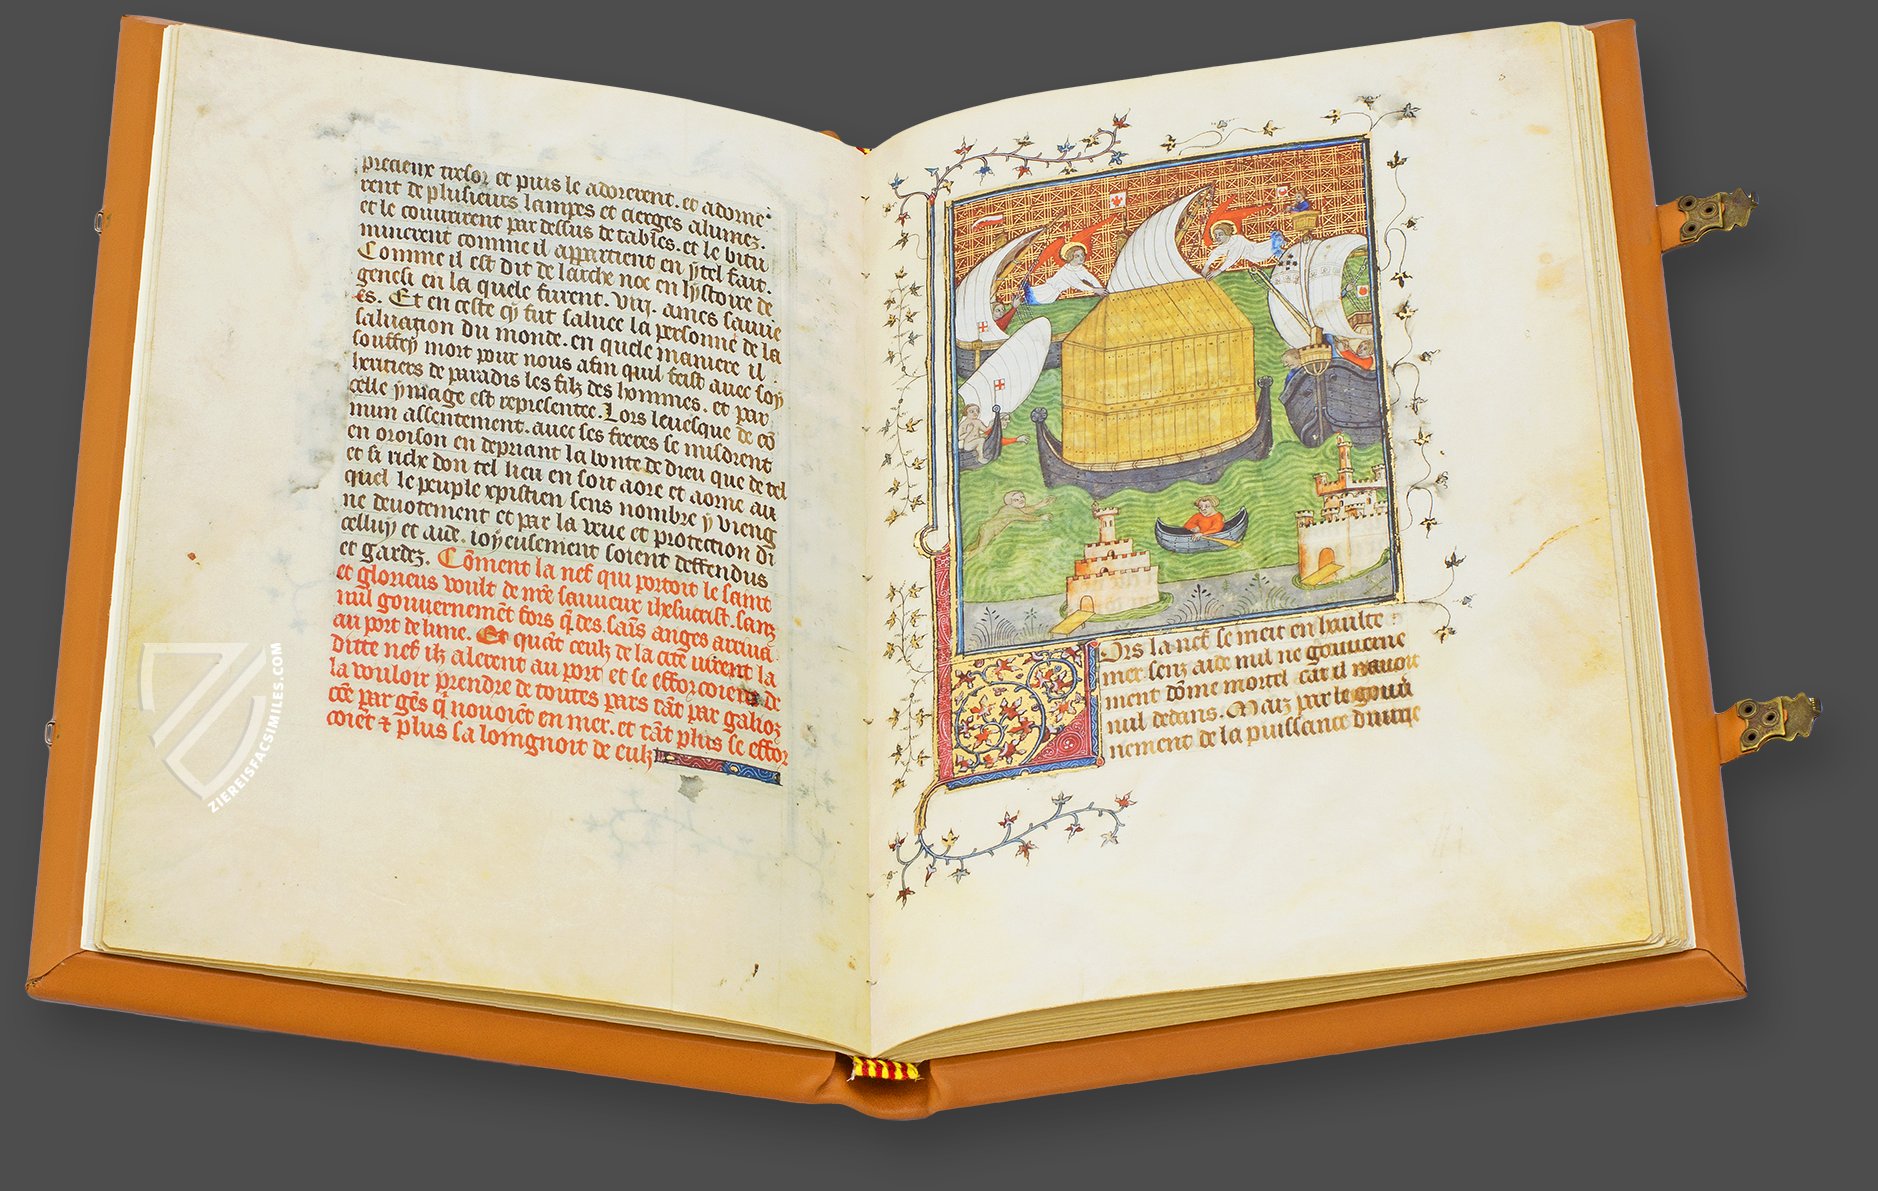 precieux tresor et puis le adorerent. et adorne
rent de plusieurs lampes et cierges alumez.
et le couurirent par dessus de tables. et le bitu
minerent comme il appartient en ytel fait.
Comme il est dit de larche noe en lystoire de
genesi en la quele furent. viij. ames sauue
es. Et en ceste cy fut saluee la personne de la
saluation du monde. en quele maniere il
souffry mort pour nous afin quil feist auec soy
heritiers de paradis les filz des hommes. et par
celle ymage est representee. Lors leuesque de cō
mun assentement. auec ses freres se misdrent
en oroison en depriant la bonte de dieu que de tel
et si riche don tel lieu en soit aore et aorne au
quel le peuple xpistien sens nombre y vieng
ne deuotement et par la veue et protection di
celluy et aide. ioyeusement soient deffendus
et gardez. Cōment la nef qui portoit le saint
et glorieus voult de nr̄e sauueur ihesucrist. sanz
nul gouuernemēt fors q̄ des. sais anges arriua
au port de lune. Et quāt ceulz de la cite virent la
ditte nef ilz alerent au port et se efforcoient de
la vouloir prendre de toutes pars tāt par galioz
cōe par gēs q̄ nouoiēt en mer. et tāt plus se effor
coiēt & plus sa loingnoit de eulz
Ors la nef se meit en haulte
mer senz aide nul ne gouuerne
ment dōme mortel car il nauoit
nul dedans. Maiz par le gouū
nement de la puissance diuine
ZIEREISFACSIMILES.COM